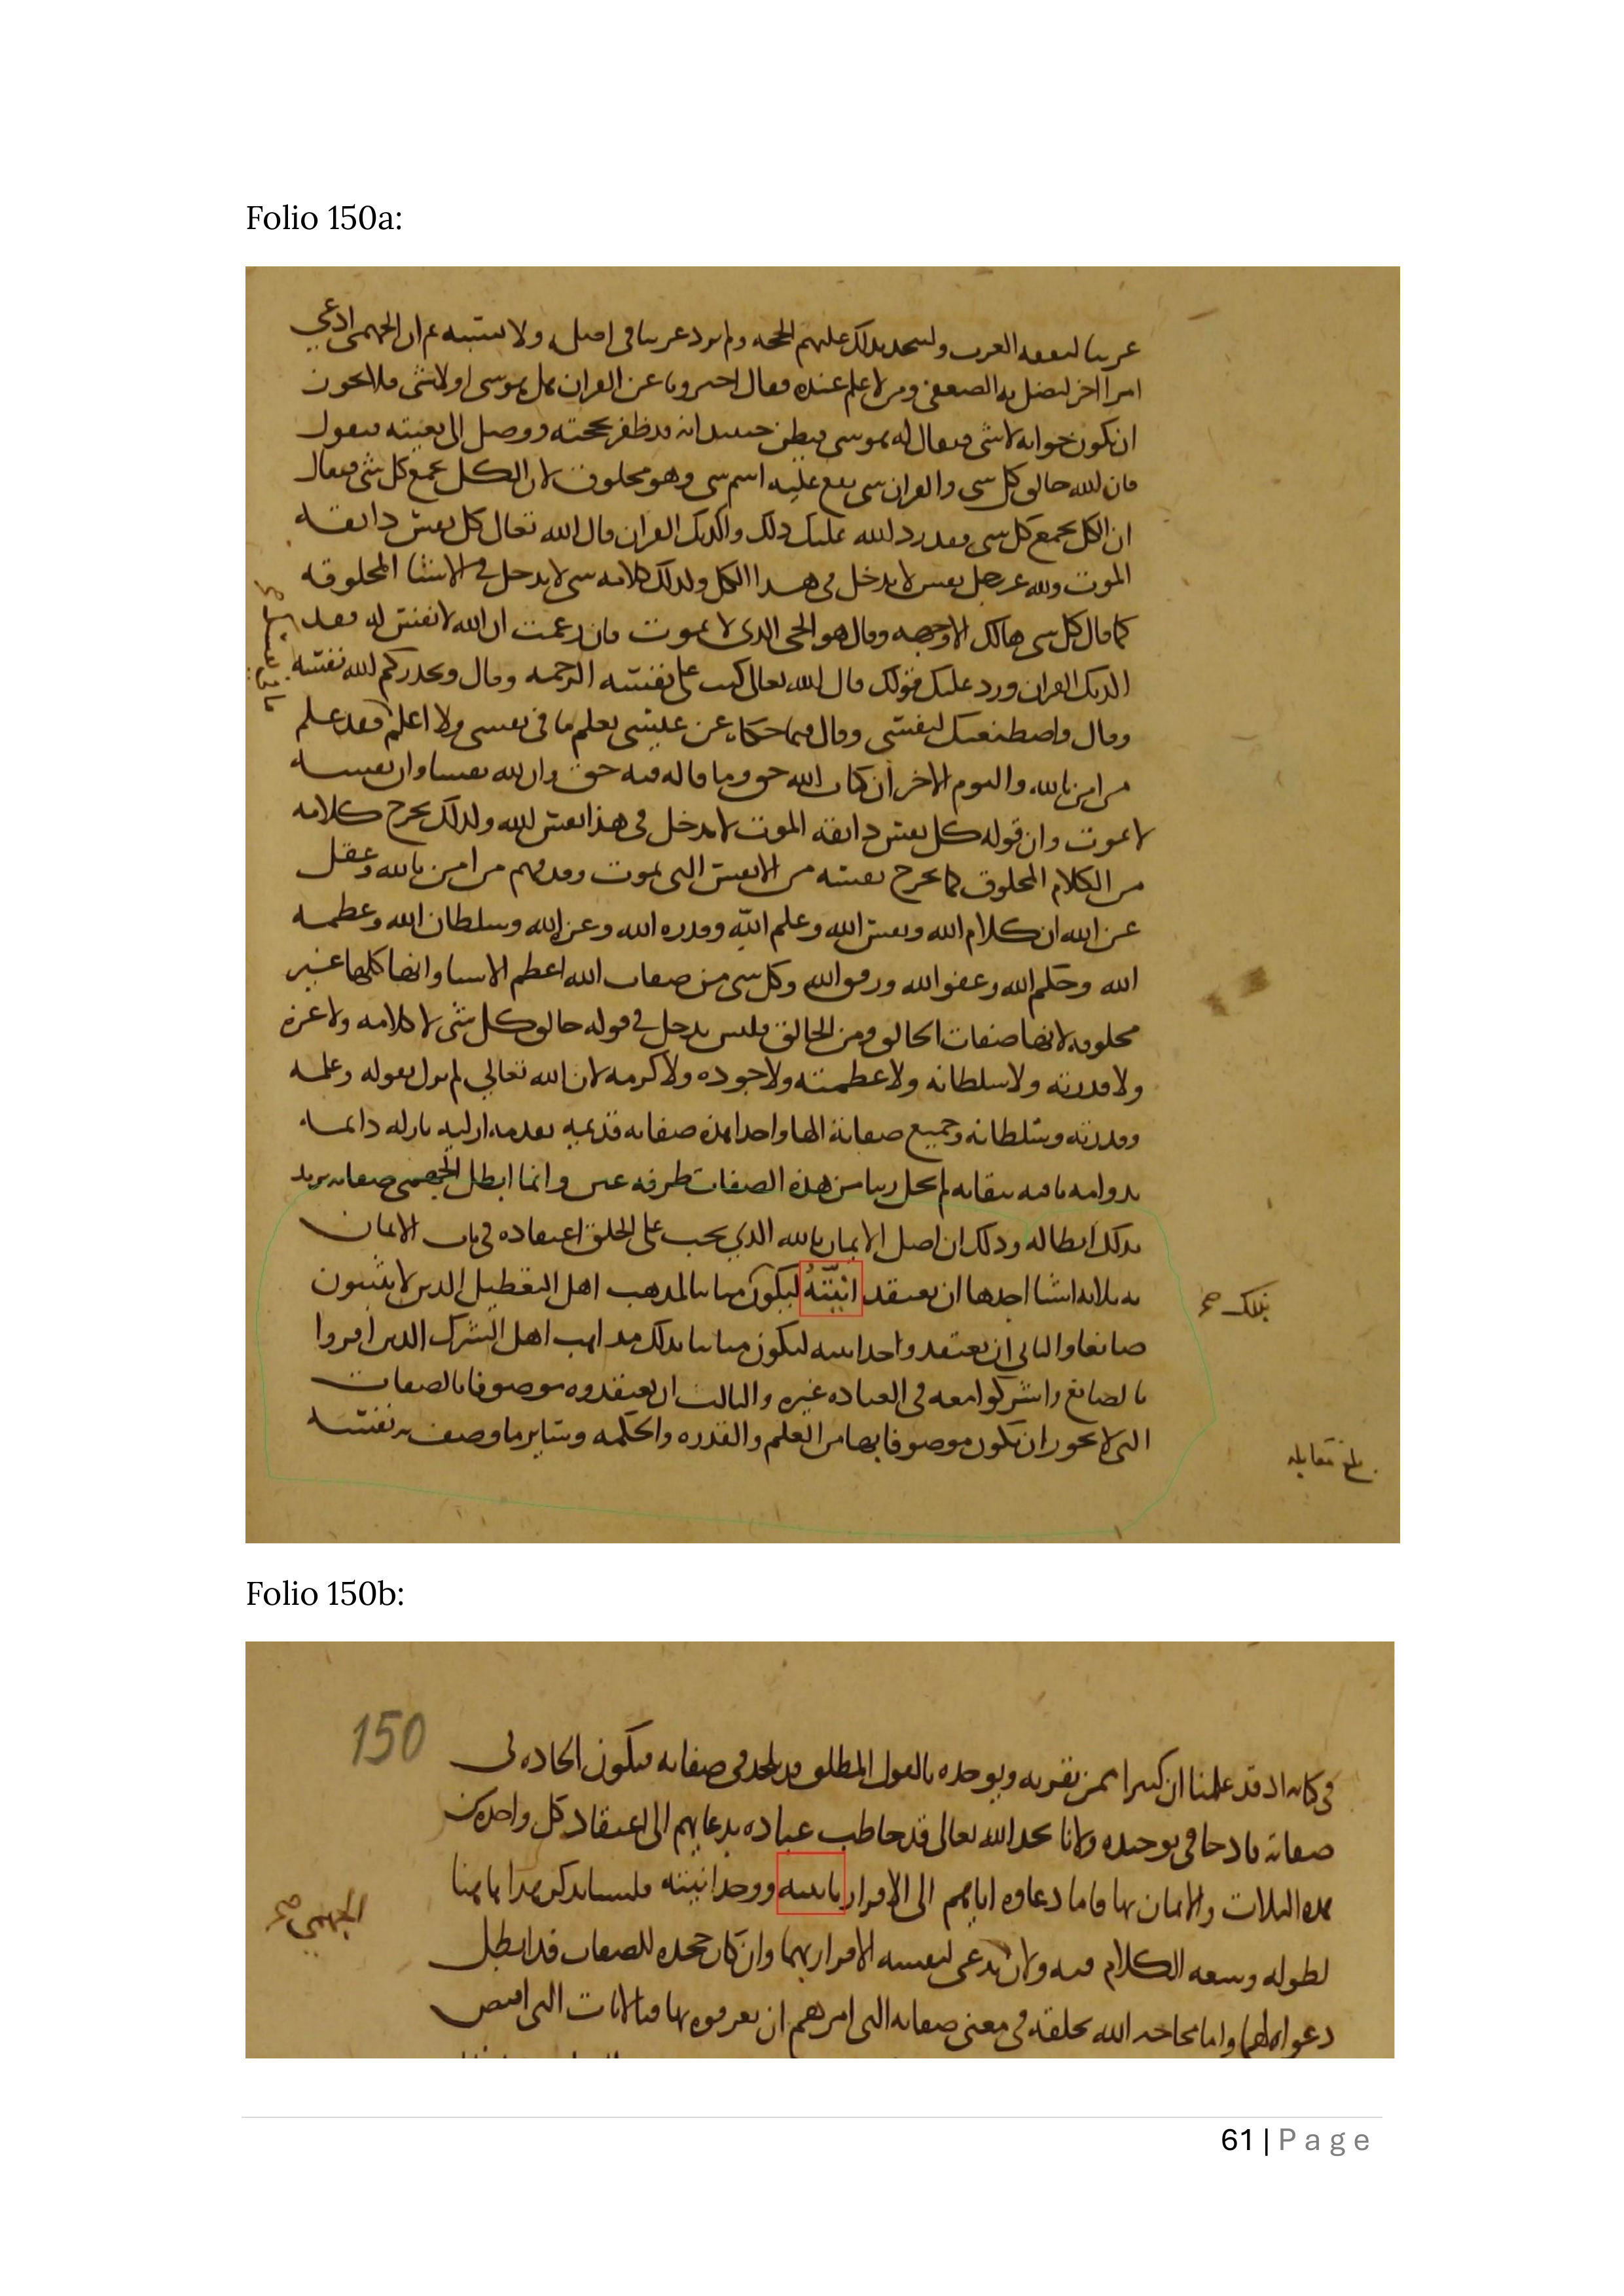 Folio 150a:
عربيا لىفقه العرب ولىتخد بذلك عليهم الحجه ولم يرد عربيا في اصله ولا بنسبه ثم ان الجهمي ادعى
امرا اخر ليضل به الضعفى ومن لا علم عنده فقال اخبرونا عن القران هل هو شى او لا شى فلا يجوز
ان يكون جوابه لا شى فيقال له هو شى فيظن حينيد انه قد ظفر بحجته ووصل الى بغيته فيقول
فان الله خالق كل شي والقران شي يقع عليه اسم شى وهو مخلوق لان الكل يجمع كل شى فيقال
ان الكل يجمع كل شى فقد رد الله عليك ذلك واكذبك القران قال الله تعالى كل نفس ذايقه
الموت ولله عز وجل نفس لا يدخل في هذا الكل ولذلك كلامه شى لا يدخل في الاشيا المخلوقه
كما قال كل شي هالك الا وجهه وقال هو الحي الذي لا يموت فان زعمت ان الله لا نفس له فقد
اكذبك القران ورد عليك قولك قال الله تعالى كتب على نفسه الرحمه وقال ويحذركم الله نفسه
وقال واصطنعتك لنفسي وقال فيما حكاه عن عيسى تعلم ما في نفسى ولا اعلم فقد علم
من امن بالله واليوم الاخر ان كتاب الله حق وما قاله فيه حق وان لله نفسا وان نفسه
لا تموت وان قوله كل نفس ذايقه الموت لا يدخل في هذا نفس الله ولذلك يخرج كلامه
من الكلام المخلوق كما يخرج نفسه من الانفس التي تموت وقد فهم من امن بالله وعقل
عن الله ان كلام الله ونفس الله وعلم الله وقدره الله وعز الله وسلطان الله وعظمه
الله وحلم الله وعفو الله ورفق الله وكل شى من صفات الله اعظم الاشيا وانها كلها غير
مخلوقه لانها صفات الخالق ومن الخالق فليس يدخل في قوله خالق كل شى لا كلامه ولا عزه
ولا قدرته ولا سلطانه ولا عظمته ولا جوده ولا كرمه لان الله تعالى لم يزل بقوله وعلمه
وقدرته وسلطانه وجميع صفاته الها واحدا هذه صفاته قديمه بقدمه ازليه بازله دايمه
بدوامه باقيه ببقايه لم يخل ربنا من هذه الصفات طرفه عين وانما ابطل الجهمي صفاته يريد
بذلك ابطاله وذلك ان اصل الايمان بالله الذي يجب على الخلق اعتقاده في باب الايمان
به ثلاثه اشيا احدها ان يعتقد انيته ليكون مباينا لمذهب اهل التعطيل الذين لا يثبتون
بذلك صح
صانعا والثاني ان يعتقد واحدانيته ليكون مباينا بذلك مذاهب اهل الشرك الذين اقروا
بالصانع واشركوا معه في العباده غيره والثالث ان يعتقدوه موصوفا بالصفات
التي لا يجوز ان يكون موصوفا بها من العلم والقدره والحكمه وساير ما وصف به نفسه
بلغ مقابله
Folio 150b:
150
في كتابه اد قد علمنا ان كثيرا ممن يقر به ويوحده بالقول المطلق قد يلحد في صفاته فيكون الحاده في
صفاته قادحا في توحيده ولانا نجد الله تعالى قد خاطب عباده بدعايهم الى اعتقاد كل واحده من
هذه الثلاث والايمان بها فاما دعاوه اياهم الى الاقرار بانيته ووحدانيته فلسنا نذكر هذا هاهنا
لطوله وسعه الكلام فيه ولان يدعي لنفسه الاقرار بهما وان كان جحده للصفات قد ابطل
الجهمي صح
دعواه لهما واما محاجه الله لخلقه في معنى صفاته التي امرهم ان يعرفوه بها فبالايات التي اقتص
61 | Page